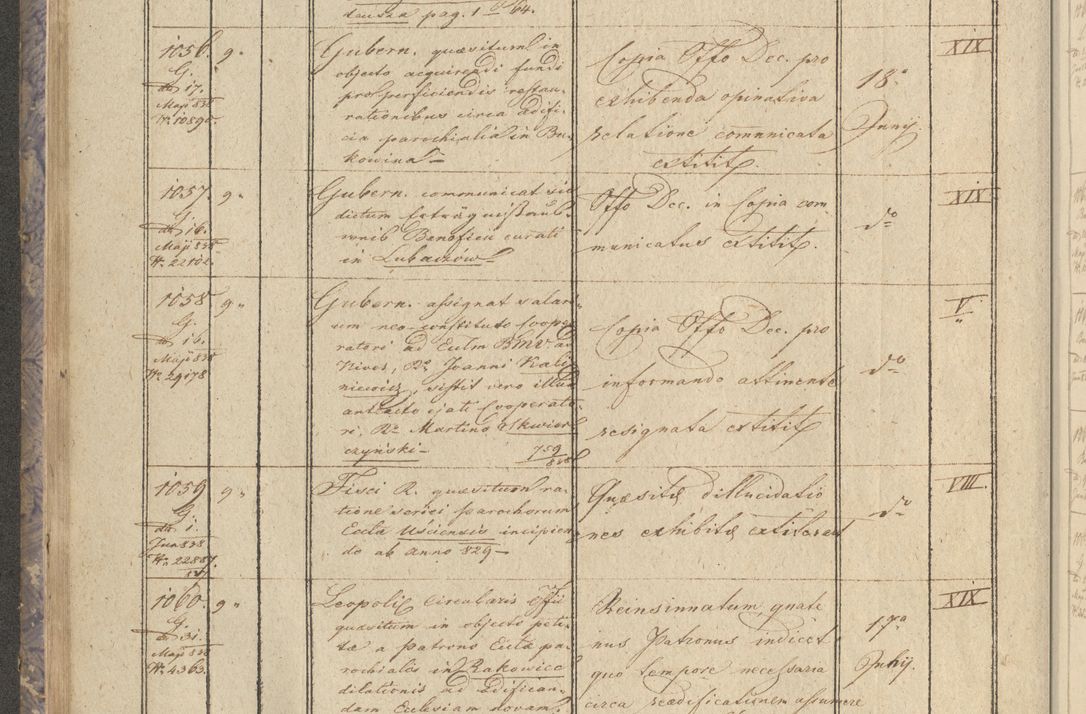 pag. 1 64.
1056. 9.
G.
dto 17.
Maji 838
No 10590.
Gubern. quaesitum in
objecto acquirendi fundi
pro perficiendis restau-
rationibus circa aedifi-
cia parochialia in Bu-
kowina
Copia Offo Dec. pro
exhibenda opinativa
relatione communicata
extitit.
18a
Junij
XIX
1057. 9.
G.
dto 16.
Maji 838
No 22102.
Gubern. communicat
dictum
Beneficii curati
in Lubaczów
Offo Dec. in Copia com
municatus extitit.
do
XIX
1058 9.
G.
dto 16.
Maji 838
No 29178
Gubern. assignat salari-
um neo-constituto Coope-
ratori ad Eccl. BMV. ad
Nives, Rd. Joanni Kali-
niewicz, sistit vero illud
antea Cooperato-
ri, Rd. Martino Skwier
czyński
759
838
Copia Offo Dec. pro
informando attinente
resignata extitit
do
V.
1059 9.
G.
dto 1.
Jun 838
No 22887.
837
Fisci R. quaesitum ra-
tione seriei parochorum
Eccla Usciensis incipien
do ab anno 829
Quaesitae dillucidatio
nes exhibitae extiterunt
do
VIII.
1060. 9.
G.
dto 31.
Maji 838
No 4363.
Leopoli Circularis Offii
quaesitum in objecto peti-
tae a patrono Eccla pa-
rochialis in Rakowice
dilationis ad aedifican-
dam Ecclesiam novam.
Reinsinnatum, quate
nus Patronus indicet
quo tempore necessaria
circa reaedificationem assumere
17a
Julij.
XIX